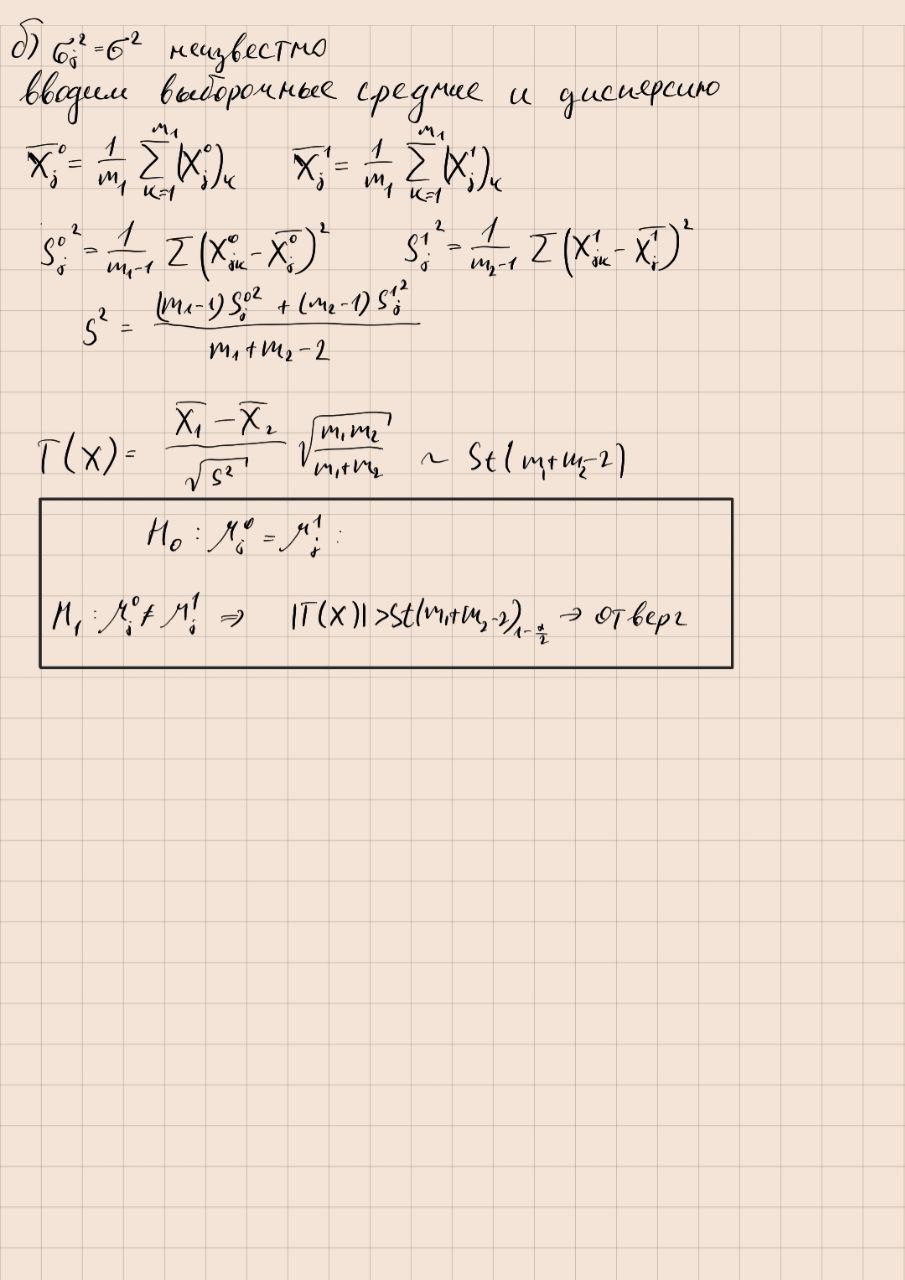 б) σⱼ² = σ² неизвестно
вводим выборочные средние и дисперсию
X̅ⱼ⁰ = 1/m₁ ∑_{k=1}^{m₁} (Xⱼ⁰)ₖ   X̅ⱼ¹ = 1/m₁ ∑_{k=1}^{m₁} (Xⱼ¹)ₖ
Sⱼ⁰² = 1/(m₁-1) ∑ (Xⱼₖ⁰ - X̅ⱼ⁰)²   Sⱼ¹² = 1/(m₂-1) ∑ (Xⱼₖ¹ - X̅ⱼ¹)²
S² = ((m₁-1) Sⱼ⁰² + (m₂-1) Sⱼ¹²) / (m₁+m₂-2)
T(X) = (X̅₁ - X̅₂)/√S² √(m₁m₂/(m₁+m₂)) ~ St(m₁+m₂-2)
H₀ : μⱼ⁰ = μⱼ¹ :
H₁ : μⱼ⁰ ≠ μⱼ¹ ⇒ |T(X)| > St(m₁+m₂-2)_{1-α/2} → отверг